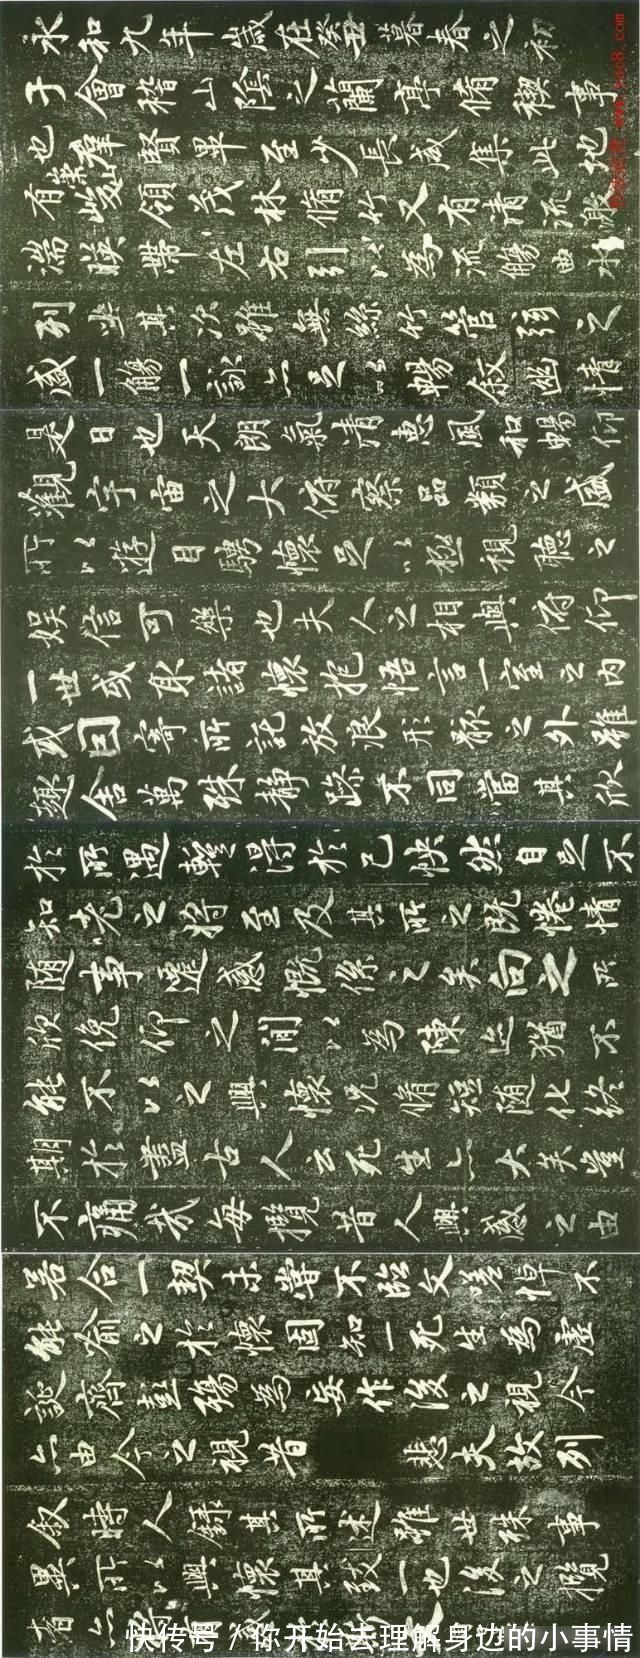 永和九年歲在癸丑暮春之初
于會稽山陰之蘭亭脩稧事
也群賢畢至少長咸集此地
有崇山峻領茂林脩竹又有清流激
湍暎帶左右引以為流觴曲水
列坐其次雖無絲竹管弦之
盛一觴一詠亦足以暢敘幽情
是日也天朗氣清惠風和暢仰
觀宇宙之大俯察品類之盛
所以遊目騁懷足以極視聽之
娛信可樂也夫人之相與俯仰
一世或取諸懷抱悟言一室之內
或因寄所託放浪形骸之外雖
趣舍萬殊靜躁不同當其欣
於所遇暫得於己怏然自足不
知老之將至及其所之既惓情
隨事遷感慨係之矣向之所
欣俛仰之間以為陳迹猶不
能不以之興懷況脩短隨化終
期於盡古人云死生亦大矣豈
不痛哉每攬昔人興感之由
若合一契未嘗不臨文嗟悼不
能喻之於懷固知一死生為虛
誕齊彭殤為妄作後之視今
亦由今之視昔 悲夫故列
敘時人錄其所述雖世殊事
異所以興懷其致一也後之攬
者亦將有感
快传号/你开始去理解身边的小事情